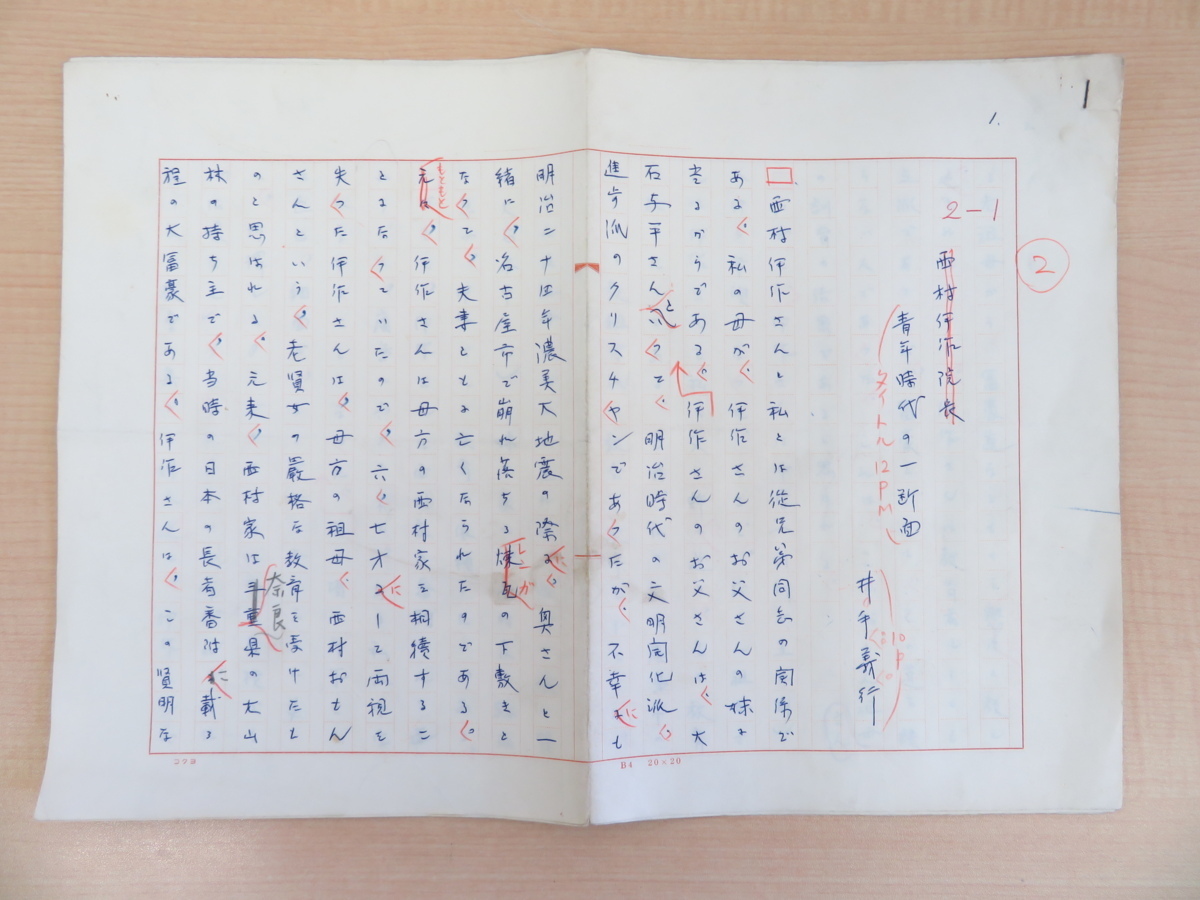 1
1.
2
2-1
西村伊作院長
青年時代の一断面
タイトル12PM
井手義行
10P
□西村伊作さんと私とは従兄弟同志の関係で
ある。私の母が、伊作さんのお父さんの妹に
当るからである。伊作さんのお父さんは、大
石与平さんと云って、明治時代の文明開化派、
進歩派のクリスチャンであったが、不幸にも
明治二十四年濃美大地震の際に、奥さんと一
緒に、名古屋市で崩れ落ちる煉瓦の下敷きと
レンガ
なって、夫妻ともに亡くなられたのである。
元は、伊作さんは母方の西村家を相続するこ
もともと
とになっていたので、六、七才にして両親を
失った伊作さんは、母方の祖母、西村おもん
さんという、老賢女の厳格な教育を受けたも
のと思はれる。元来、西村家は三重県の大山
奈良
林の持ち主で、当時の日本の長者番附に載る
程の大冨豪である。伊作さんは、この賢明な
コクヨ
B4 20×20